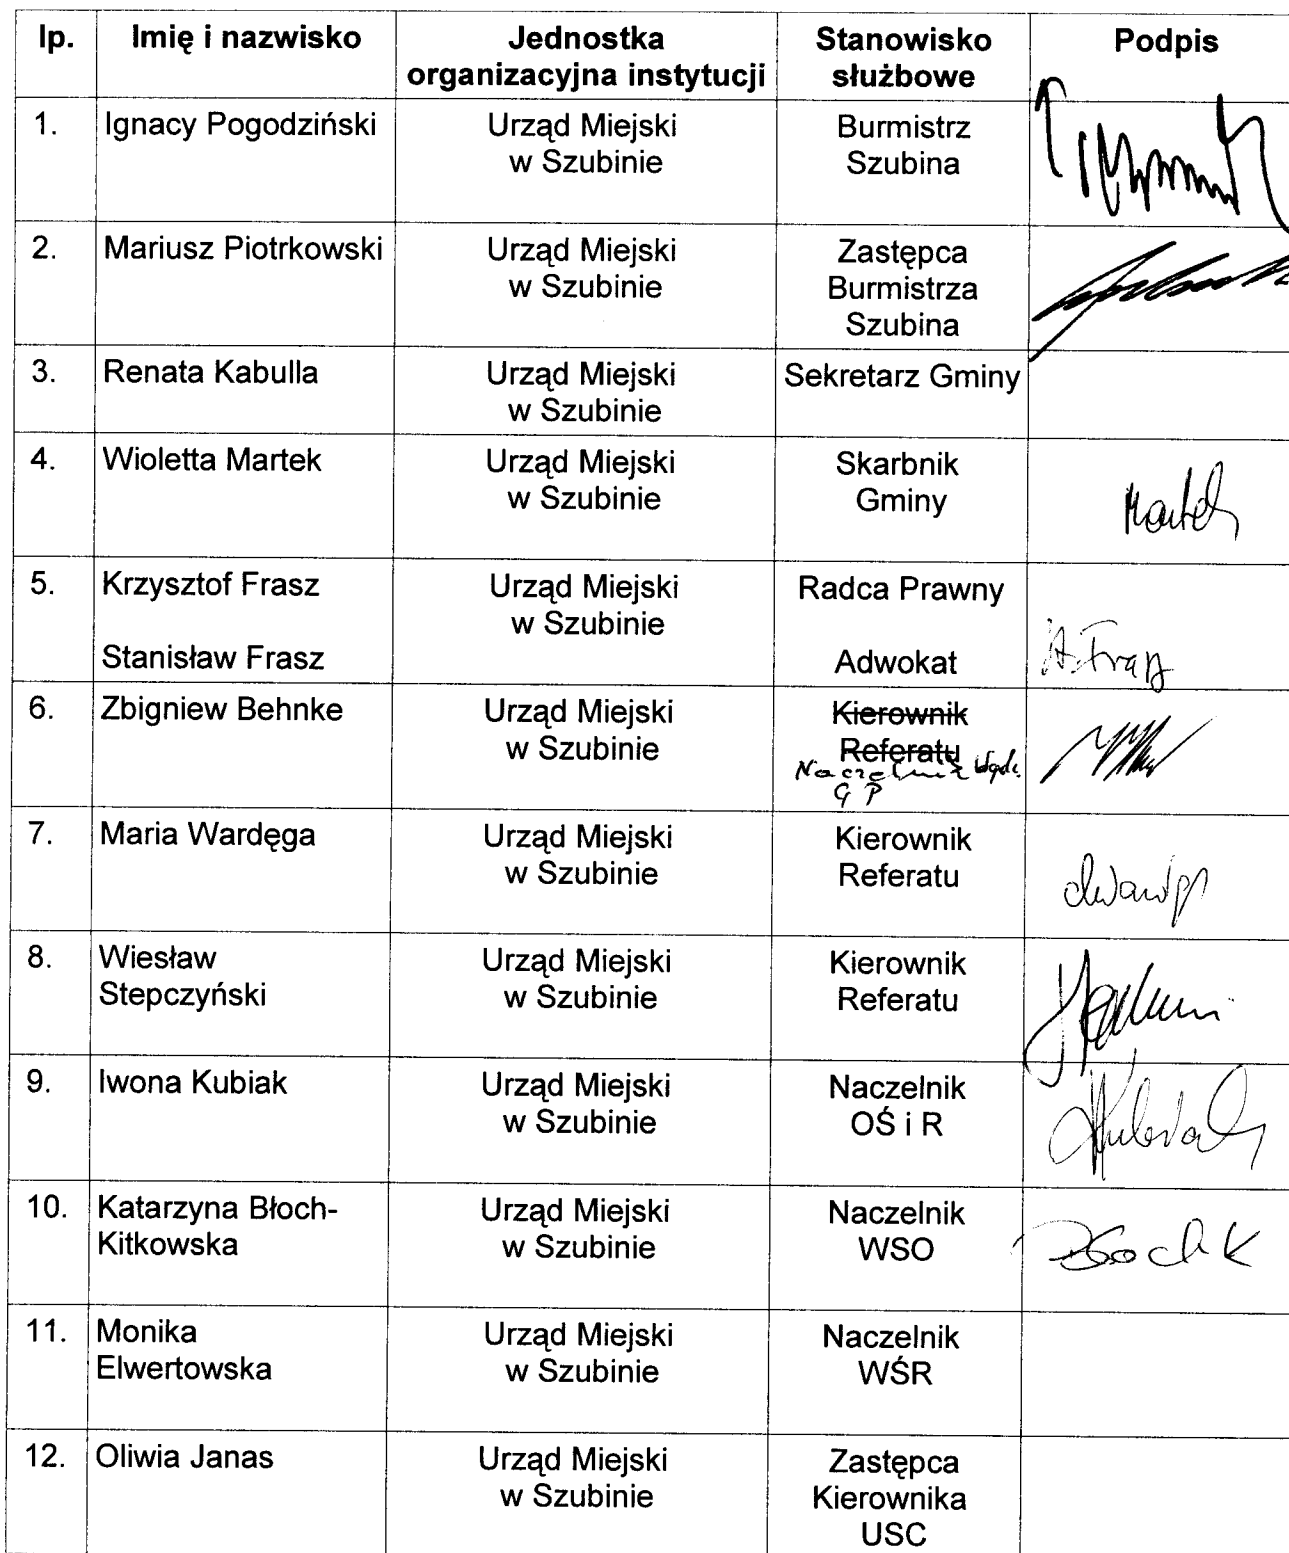 lp.
Imię i nazwisko
Jednostka
organizacyjna instytucji
Stanowisko
służbowe
Podpis
1.
Ignacy Pogodziński
Urząd Miejski
w Szubinie
Burmistrz
Szubina
2.
Mariusz Piotrkowski
Urząd Miejski
w Szubinie
Zastępca
Burmistrza
Szubina
3.
Renata Kabulla
Urząd Miejski
w Szubinie
Sekretarz Gminy
4.
Wioletta Martek
Urząd Miejski
w Szubinie
Skarbnik
Gminy
Martek
5.
Krzysztof Frasz
Stanisław Frasz
Urząd Miejski
w Szubinie
Radca Prawny
Adwokat
6.
Zbigniew Behnke
Urząd Miejski
w Szubinie
Kierownik
Referatu
Naczelnik
GP
7.
Maria Wardęga
Urząd Miejski
w Szubinie
Kierownik
Referatu
8.
Wiesław
Stepczyński
Urząd Miejski
w Szubinie
Kierownik
Referatu
9.
Iwona Kubiak
Urząd Miejski
w Szubinie
Naczelnik
OŚ i R
10.
Katarzyna Błoch-
Kitkowska
Urząd Miejski
w Szubinie
Naczelnik
WSO
11.
Monika
Elwertowska
Urząd Miejski
w Szubinie
Naczelnik
WŚR
12.
Oliwia Janas
Urząd Miejski
w Szubinie
Zastępca
Kierownika
USC